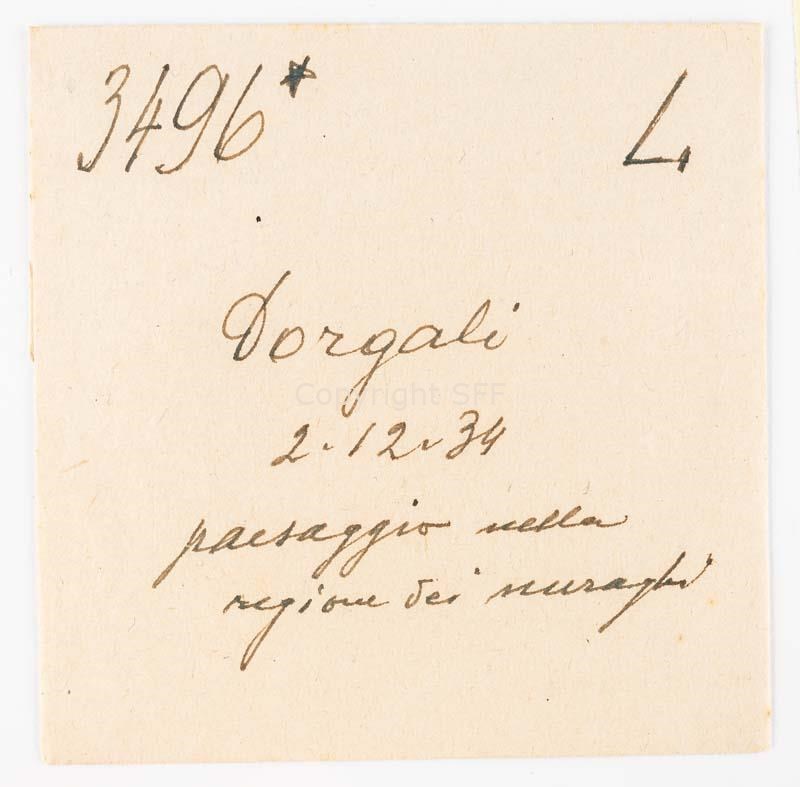 3496* L
Dorgali
Copyright SFF
2-12-34
paesaggio nella
regione dei nuraghi